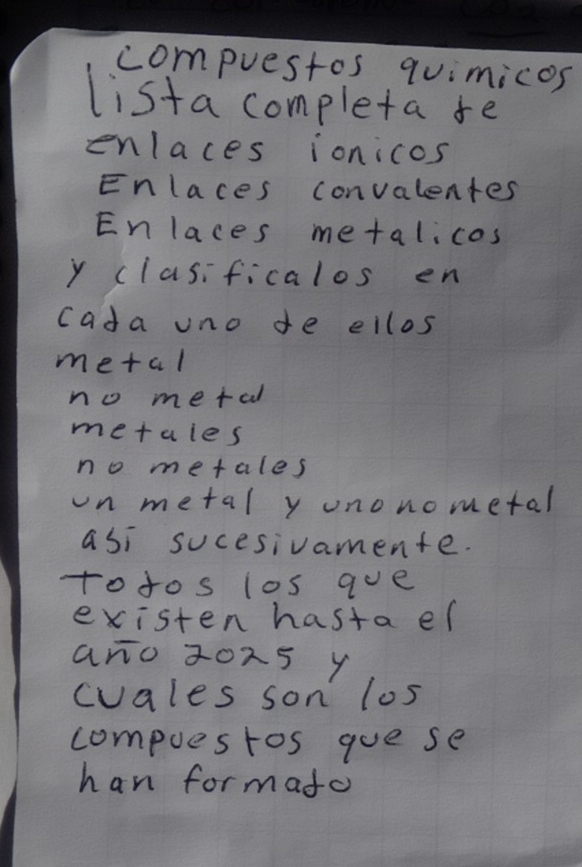 compuestos quimicos
lista completa de
enlaces ionicos
Enlaces convalentes
Enlaces metalicos
y clasificalos en
cada uno de ellos
metal
no metal
metales
no metales
un metal y uno no metal
asi sucesivamente.
Todos los que
existen hasta el
año 2025 y
cuales son los
compuestos que se
han formado